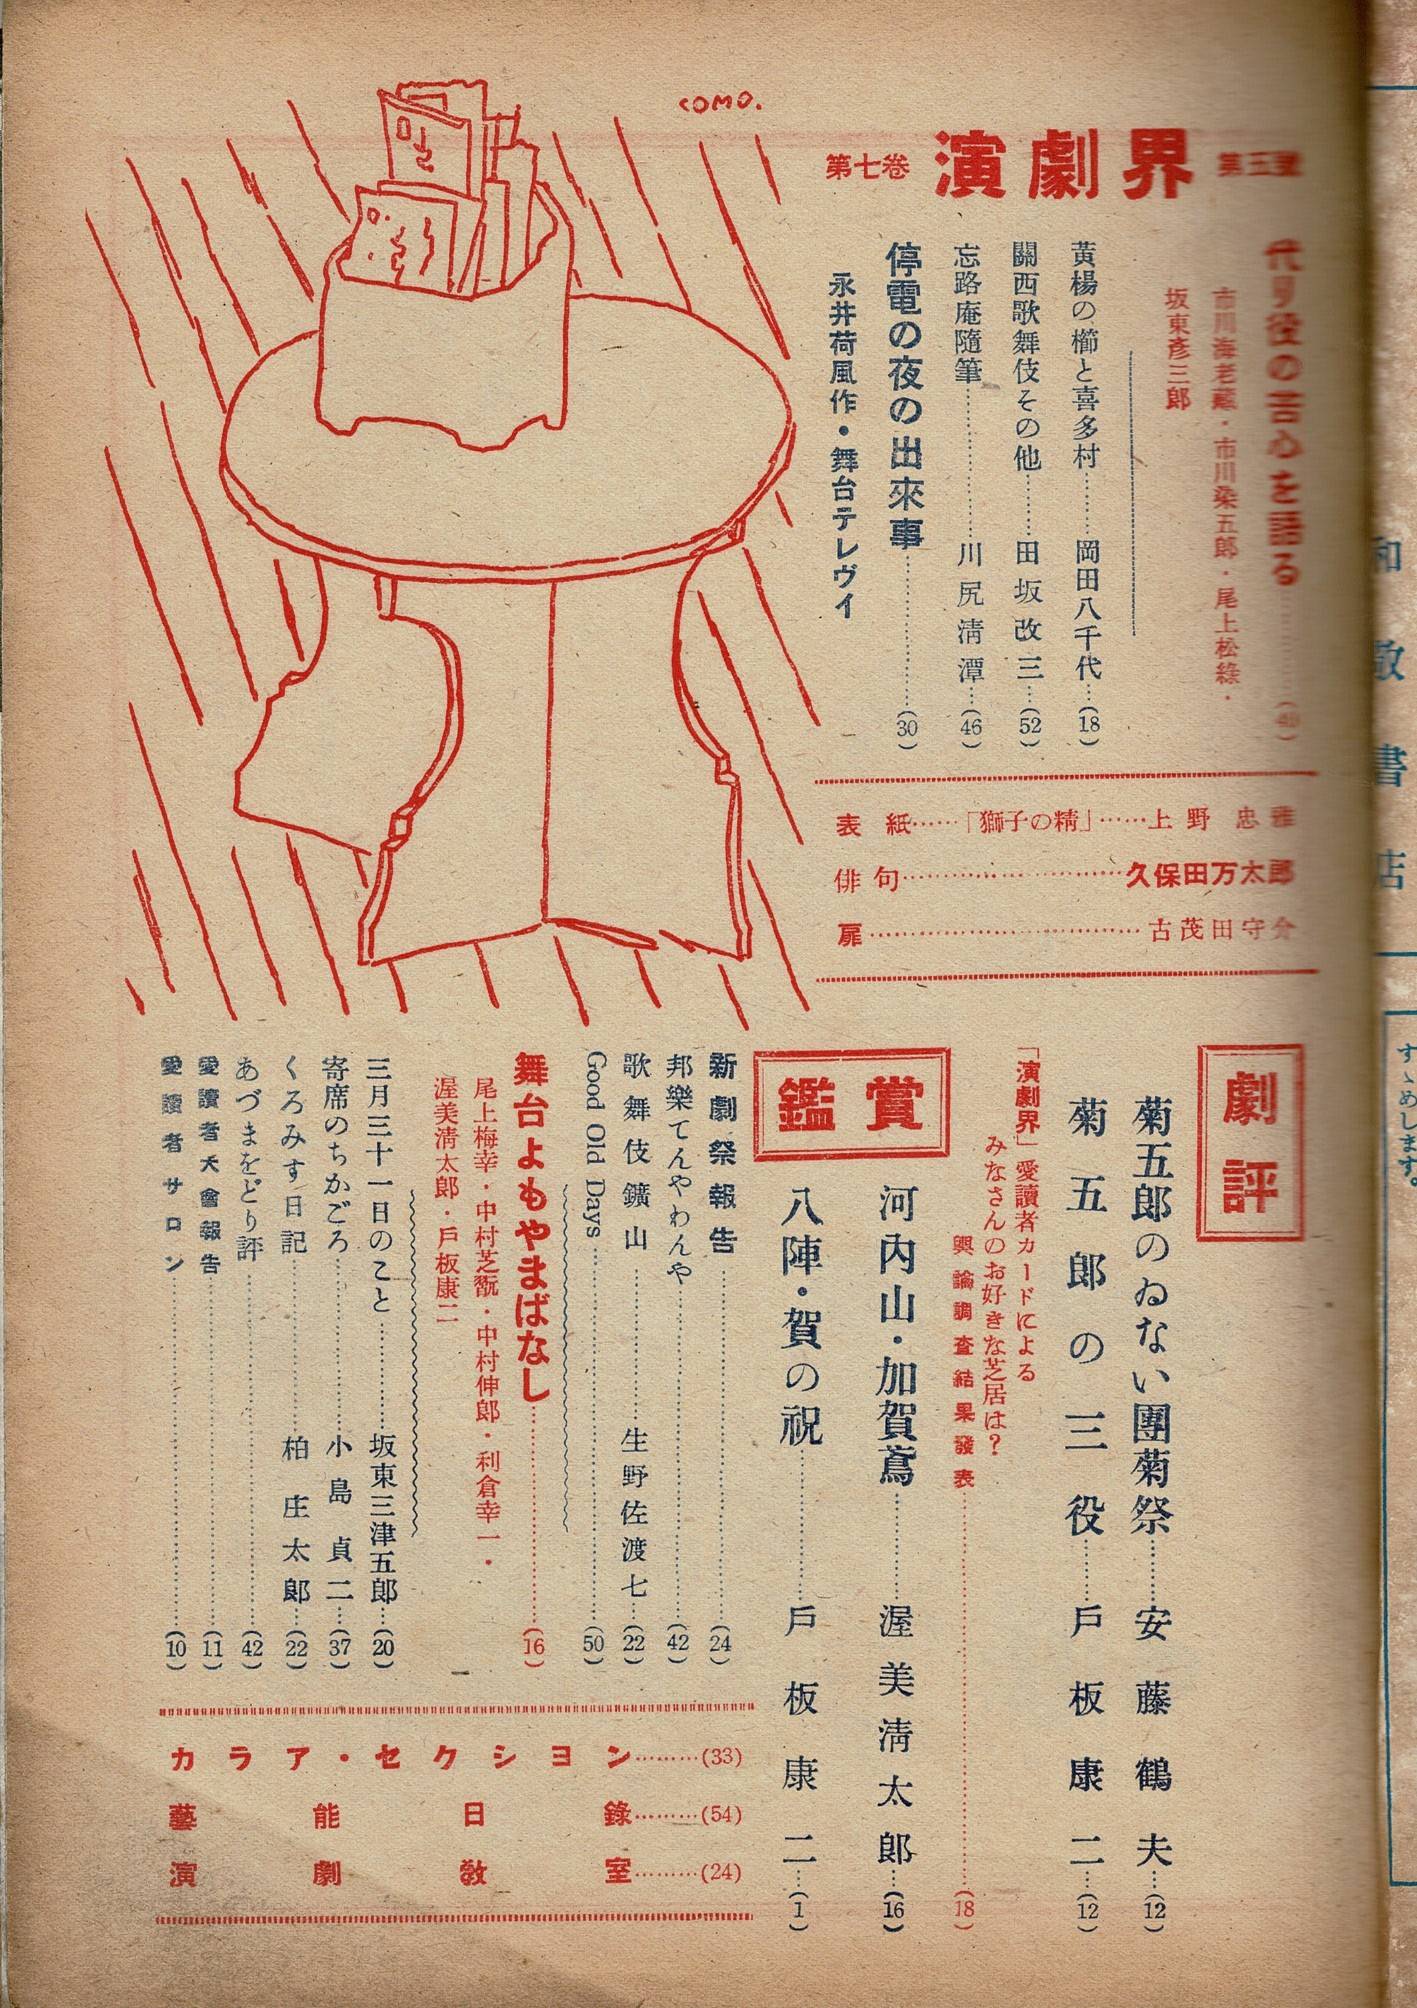 COMO.
第七巻 演劇界 第五號
代り役の苦心を語る……(40)
市川海老藏・市川染五郎・尾上松綠・
坂東彥三郎
黃楊の櫛と喜多村……岡田八千代…(18)
關西歌舞伎その他……田坂改三…(52)
忘路庵隨筆……川尻淸潭…(46)
停電の夜の出來事……(30)
永井荷風作・舞台テレヴイ
表紙……「獅子の精」……上野忠雅
俳句……久保田万太郎
扉……古茂田守介
劇評
菊五郎のゐない團菊祭……安藤鶴夫…(12)
菊五郎の三役……戶板康二…(12)
「演劇界」愛讀者カードによる
みなさんのお好きな芝居は?
輿論調査結果發表……(18)
鑑賞
河內山・加賀鳶……渥美淸太郎…(16)
八陣・賀の祝……戶板康二…(1)
新劇祭報告……(24)
邦樂てんやわんや……(42)
歌舞伎鑛山……生野佐渡七…(22)
Good Old Days……(50)
舞台よもやまばなし……(16)
尾上梅幸・中村芝翫・中村伸郎・利倉幸一・
渥美淸太郎・戶板康二
三月三十一日のこと……坂東三津五郎…(20)
寄席のちかごろ……小島貞二…(37)
くろみす日記……柏庄太郎…(22)
あづまをどり評……(42)
愛讀者大會報告……(11)
愛讀者サロン……(10)
カラア・セクシヨン………(33)
藝能日錄………(54)
演劇敎室………(24)
和敬書店
すゝめします。